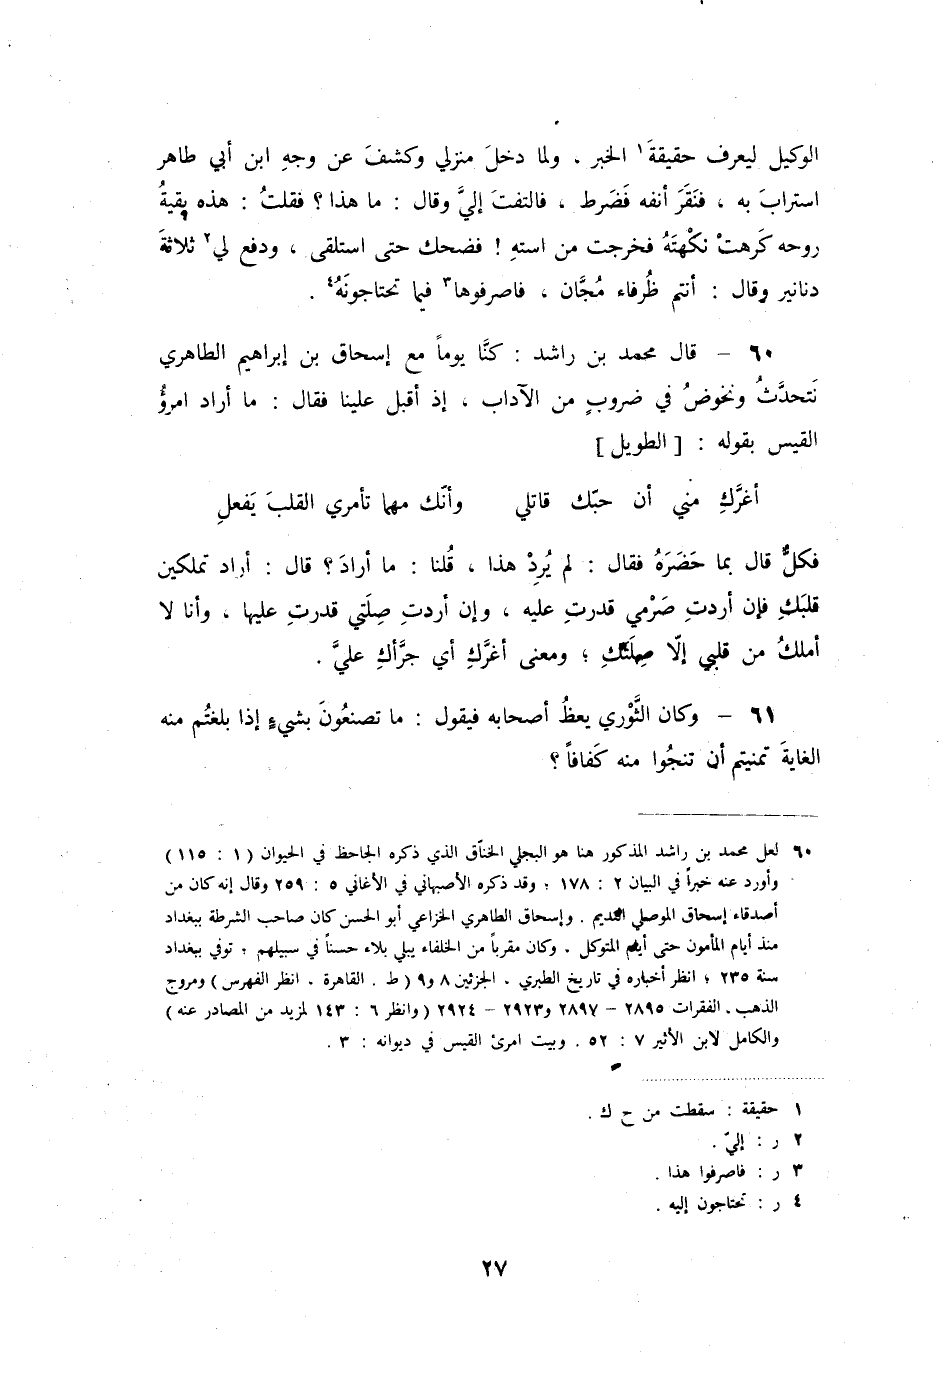 الوكيل ليعرف حقيقةَ١ الخبر . ولما دخلَ منزلي وكشفَ عن وجهِ ابن أبي طاهر
استرابَ به ، فنَقَرَ أنفه فَضَرط ، فالتفتَ إليَّ وقال : ما هذا ؟ فقلتُ : هذه بقيةُ
روحه كَرهتْ نكْهتَهُ فخرجت من استهِ ! فضحك حتى استلقى ، ودفع لي٢ ثلاثةَ
دنانير وقال : أنتم ظُرفاء مُجَّان ، فاصرفوها٣ فيما تحتاجونَهُ٤ .
٦٠ – قال محمد بن راشد : كنَّا يوماً مع إسحاق بن إبراهيم الطاهري
نَتحدَّثُ ونخوضُ في ضروبٍ من الآداب ، إذ أقبل علينا فقال : ما أراد امرؤُ
القيس بقوله : [ الطويل ]
أغرَّكِ مني أن حبّك قاتلي وأنّك مهما تأمري القلبَ يَفعلِ
فكلٌّ قال بما حَضَرَهُ فقال : لم يُردْ هذا ، قُلنا : ما أرادَ ؟ قال : أراد تملكين
قلبَكِ فإن أردتِ صَرْمي قدرتِ عليه ، وإن أردتِ صِلَتي قدرتِ عليها ، وأنا لا
أملكُ من قلبي إلّا صِلَتَكِ ؛ ومعنى أغرَّكِ أي جرَّأكِ عليَّ .
٦١ – وكان الثَّوْري يعظُ أصحابه فيقول : ما تصنعُونَ بشيءٍ إذا بلغتُم منه
الغايةَ تمنيتم أن تنجُوا منه كَفافاً ؟
٦٠ لعل محمد بن راشد المذكور هنا هو البجلي الخنّاق الذي ذكره الجاحظ في الحيوان ( ١ : ١١٥ )
وأورد عنه خبراً في البيان ٢ : ١٧٨ ؛ وقد ذكره الأصبهاني في الأغاني ٥ : ٢٥٩ وقال إنه كان من
أصدقاء إسحاق الموصلي القديم . وإسحاق الطاهري الخزاعي أبو الحسن كان صاحب الشرطة ببغداد
منذ أيام المأمون حتى أيام المتوكل . وكان مقرباً من الخلفاء يبلي بلاء حسناً في سبيلهم ؛ توفي ببغداد
سنة ٢٣٥ ؛ انظر أخباره في تاريخ الطبري . الجزئين ٨ و٩ ( ط . القاهرة . انظر الفهرس ) ومروج
الذهب . الفقرات ٢٨٩٥ – ٢٨٩٧ و٢٩٢٣ – ٢٩٢٤ ( وانظر ٦ : ١٤٣ لمزيد من المصادر عنه )
والكامل لابن الأثير ٧ : ٥٢ . وبيت امرئ القيس في ديوانه : ٣ .
١ حقيقة : سقطت من ح ك .
٢ ر : إليّ .
٣ ر : فاصرفوا هذا .
٤ ر : تحتاجون إليه .
٢٧